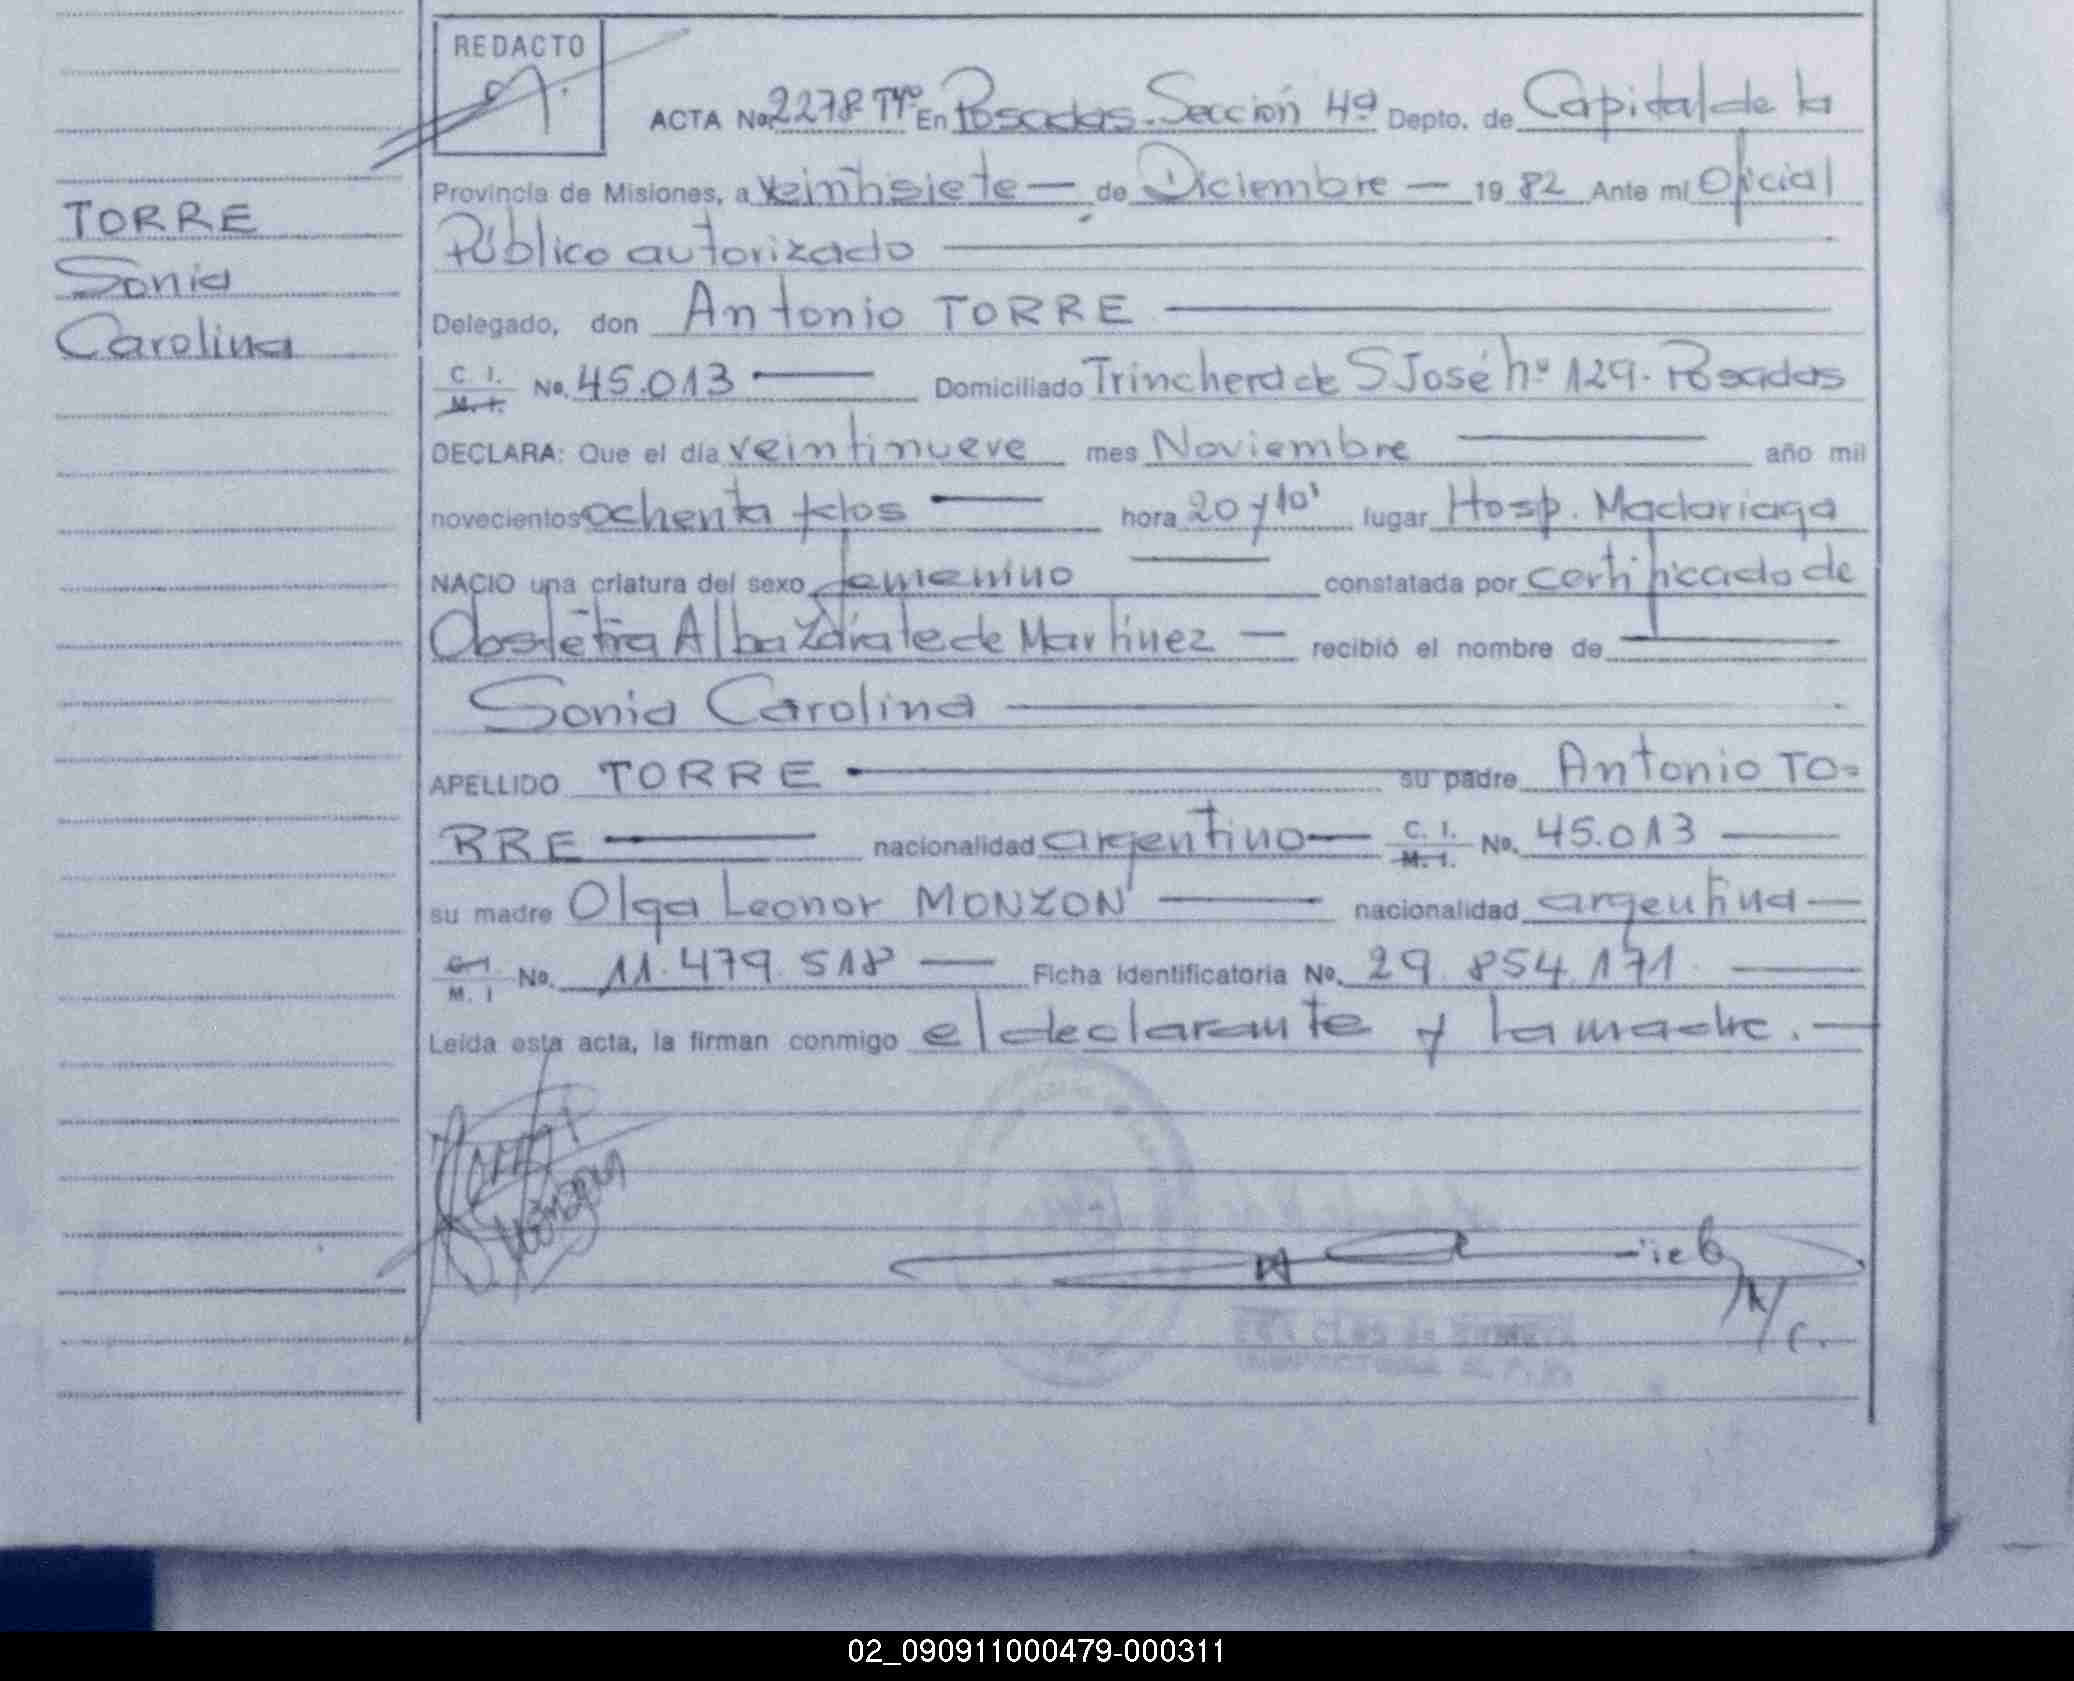 REDACTO
ACTA No. 2278 Tº En Posadas. Sección 4ª Depto. de Capital de la
Provincia de Misiones, a veintisiete — de Diciembre — 19 82 Ante mi Oficial
Público autorizado
TORRE
Sonia
Carolina
Delegado, don Antonio TORRE
C. I. M. I. No. 45.013 Domiciliado Trinchera de S José nº 129. Posadas
DECLARA: Que el día veintinueve mes Noviembre año mil
novecientos ochenta y dos hora 20 y 10' lugar Hosp. Madariaga
NACIO una criatura del sexo femenino constatada por certificado de
Obstetra Alba Zárate de Martinez — recibió el nombre de
Sonia Carolina
APELLIDO TORRE su padre Antonio TO=
RRE nacionalidad argentino — C. I. M. I. No. 45.013
su madre Olga Leonor MONZON nacionalidad argentina —
C. I. M. I No. 11.479.518 — Ficha identificatoria No. 29.854.171
Leída esta acta, la firman conmigo el declarante y la madre. —
02_090911000479-000311